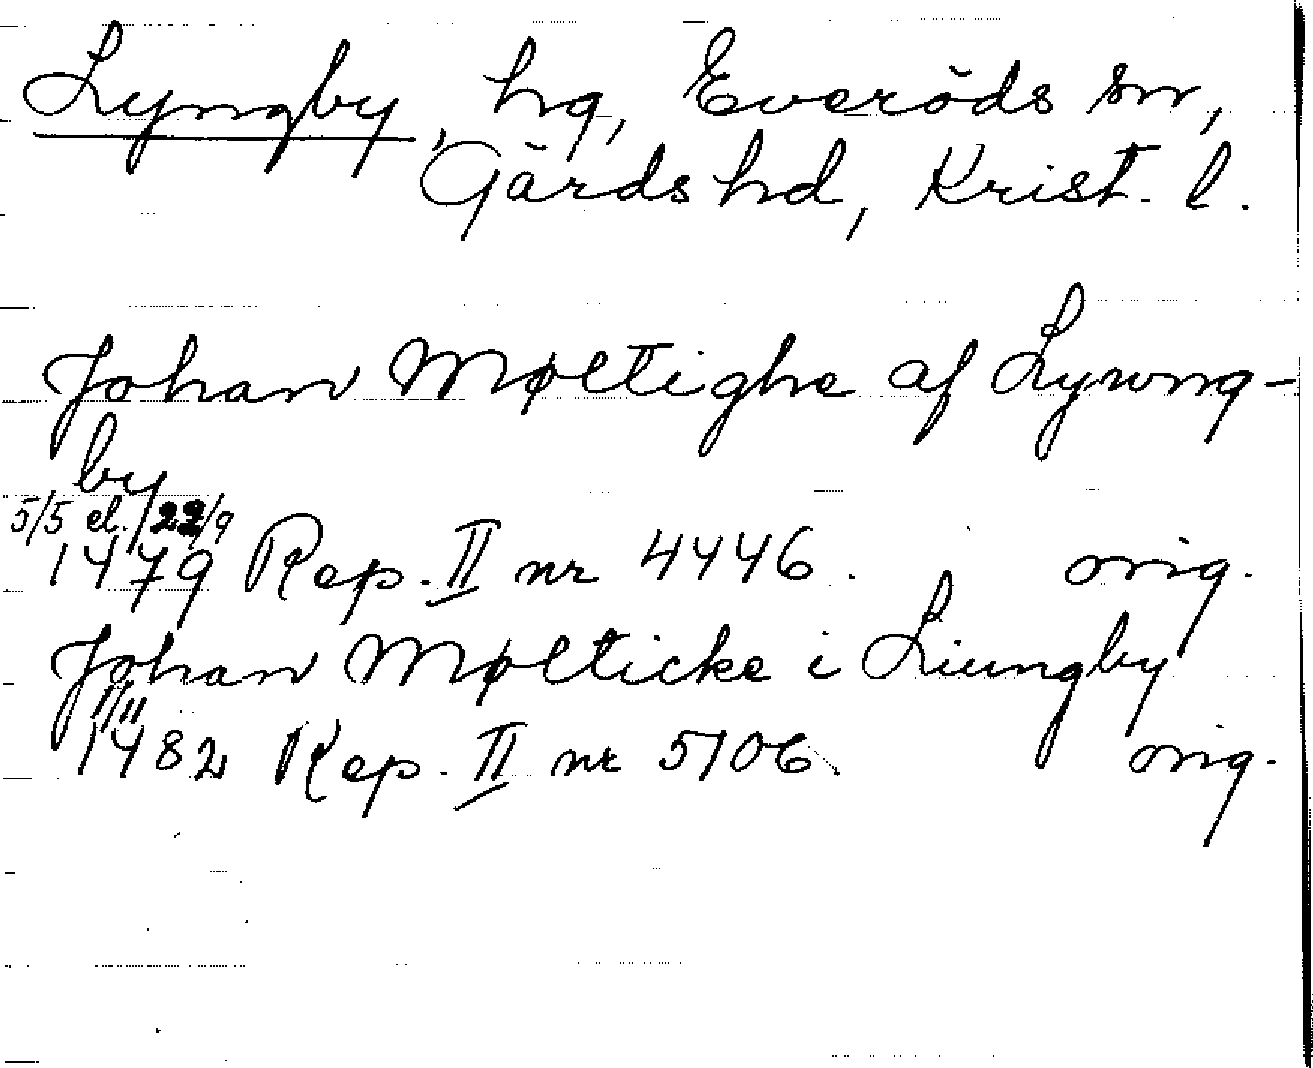 Lyngby, hg, Everöds sn,
Gärds hd, Krist. l.
Johan Møltighe af Lywng-
by
5/5 el. 22/9
1479 Rep. II nr 4446. orig.
Johan Mølticke i Liungby
1/11
1482 Rep. II nr 5106 orig.